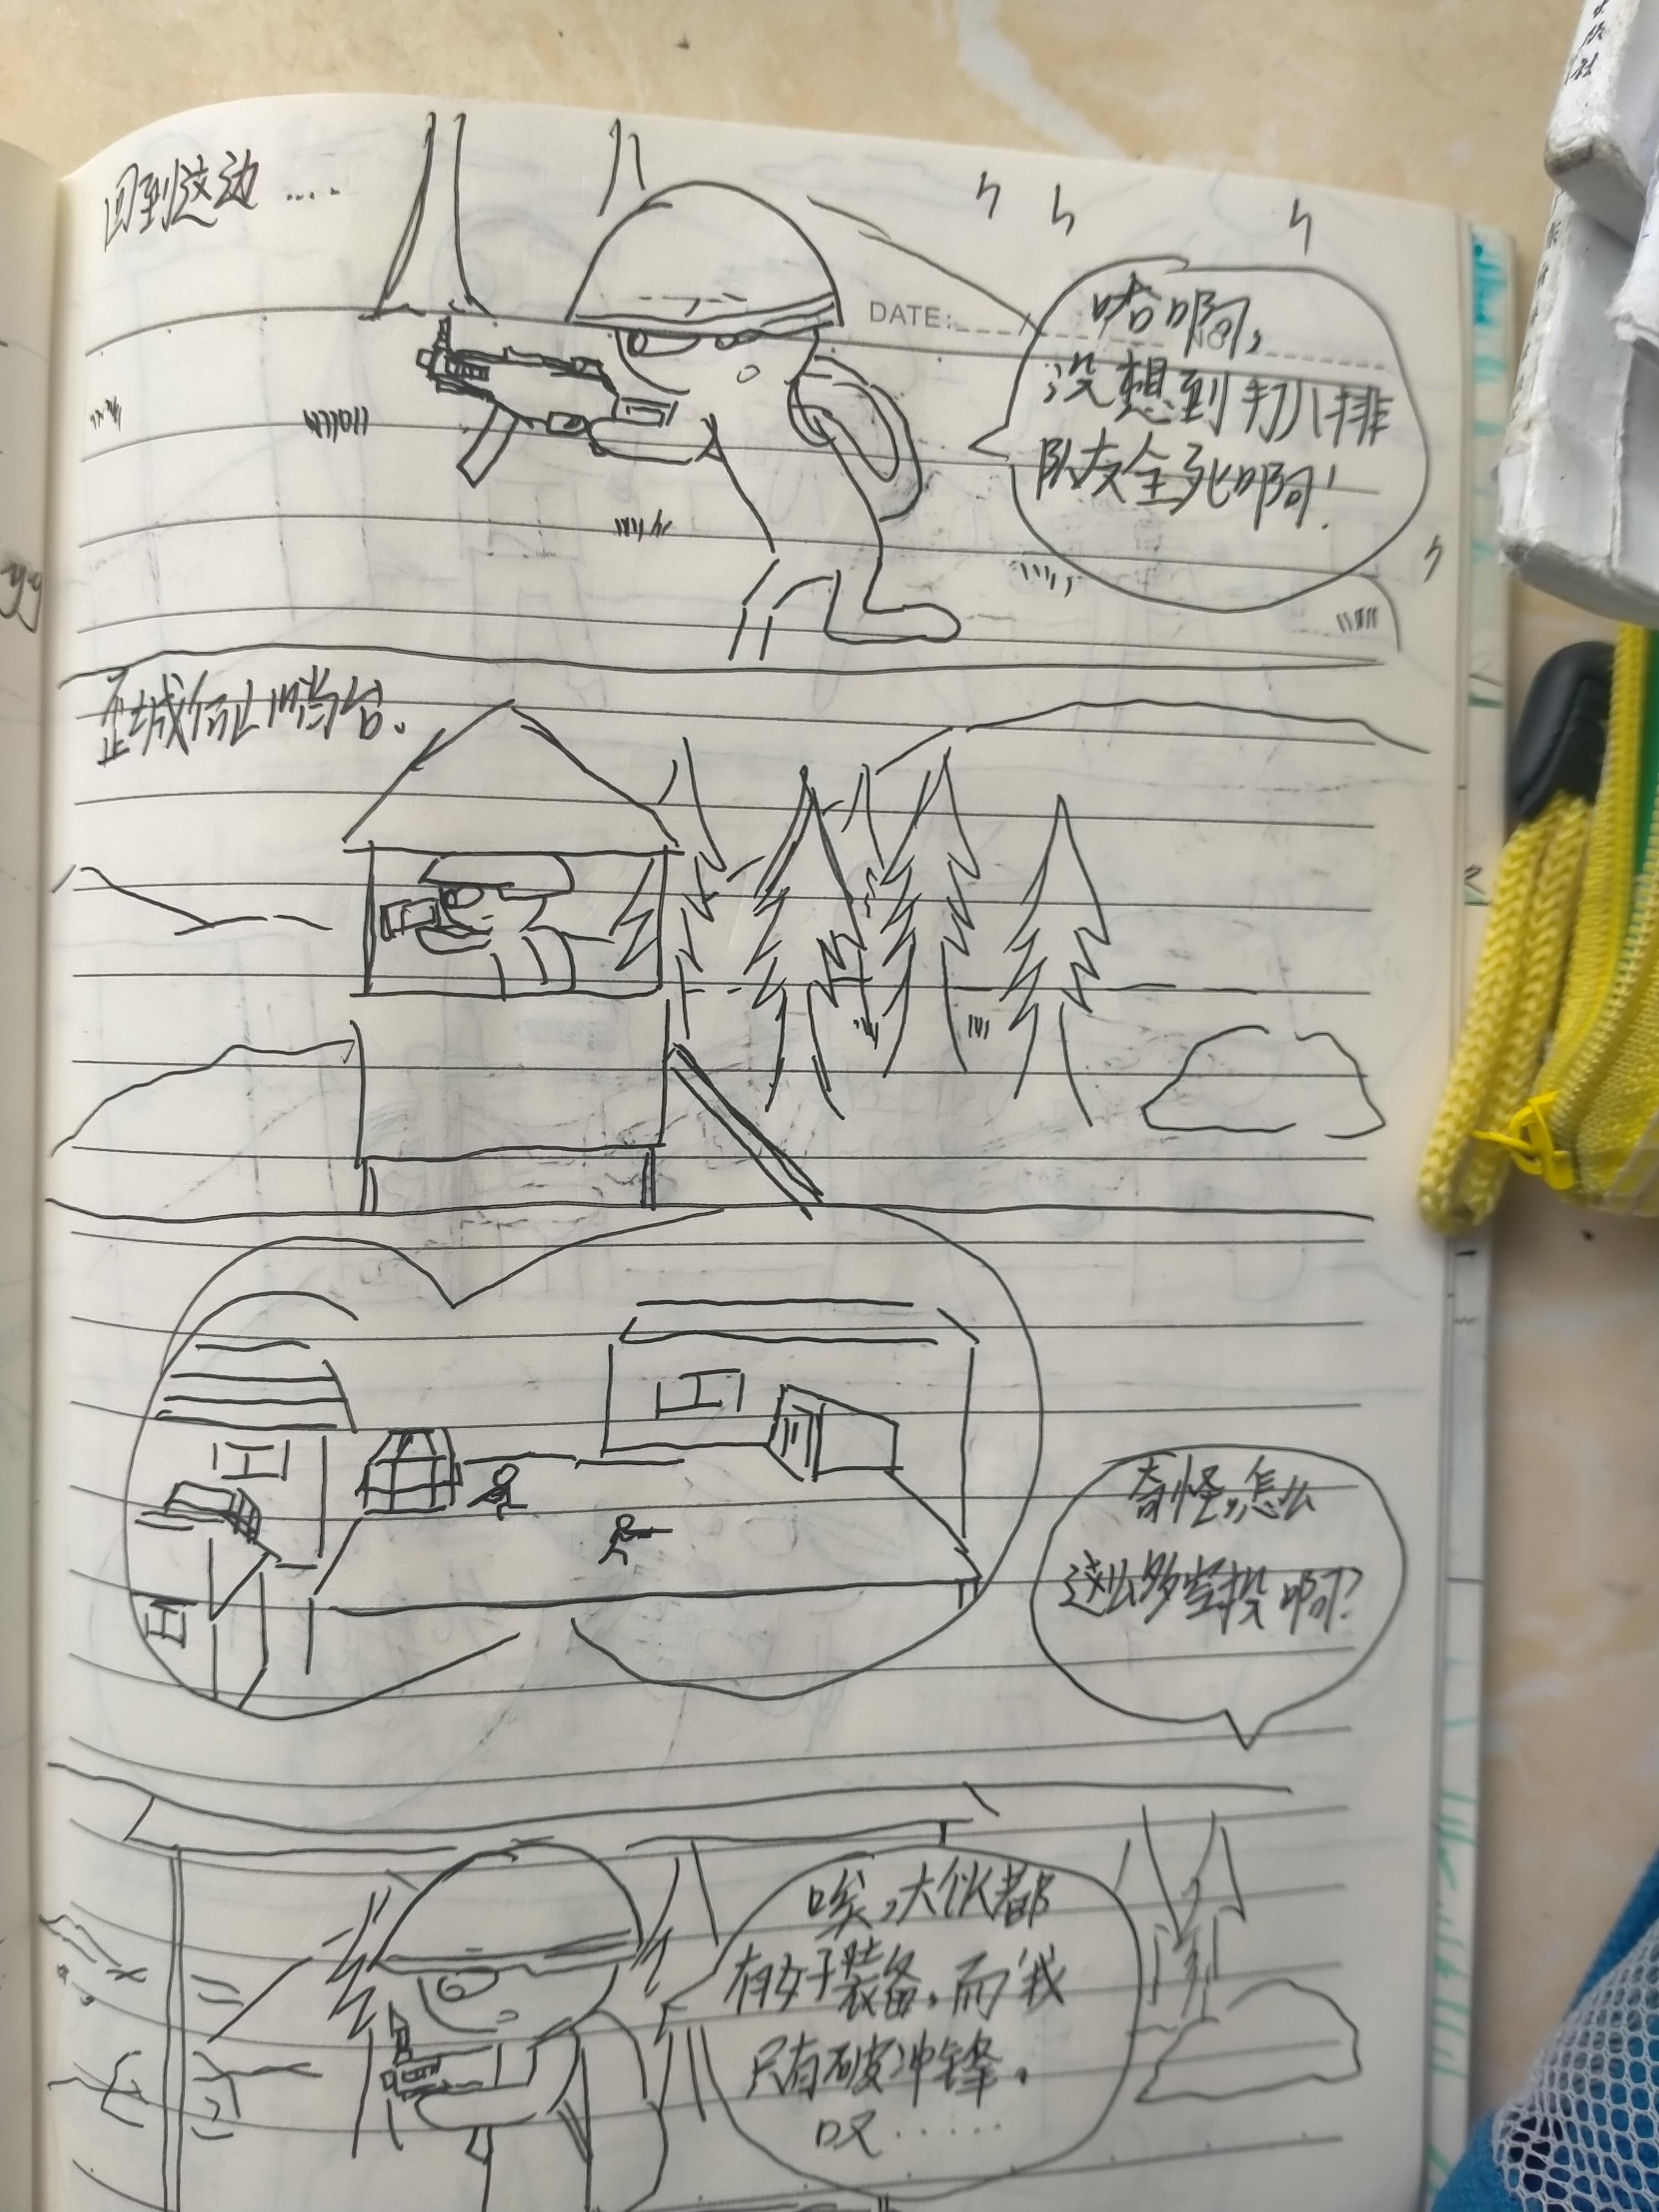 回到这边....
DATE:
哈啊,
没想到打八排
队友全死啊!
奇怪,怎么
这么多空投啊?
唉,大伙都
有好装备,而我
只有破冲锋.
哎......